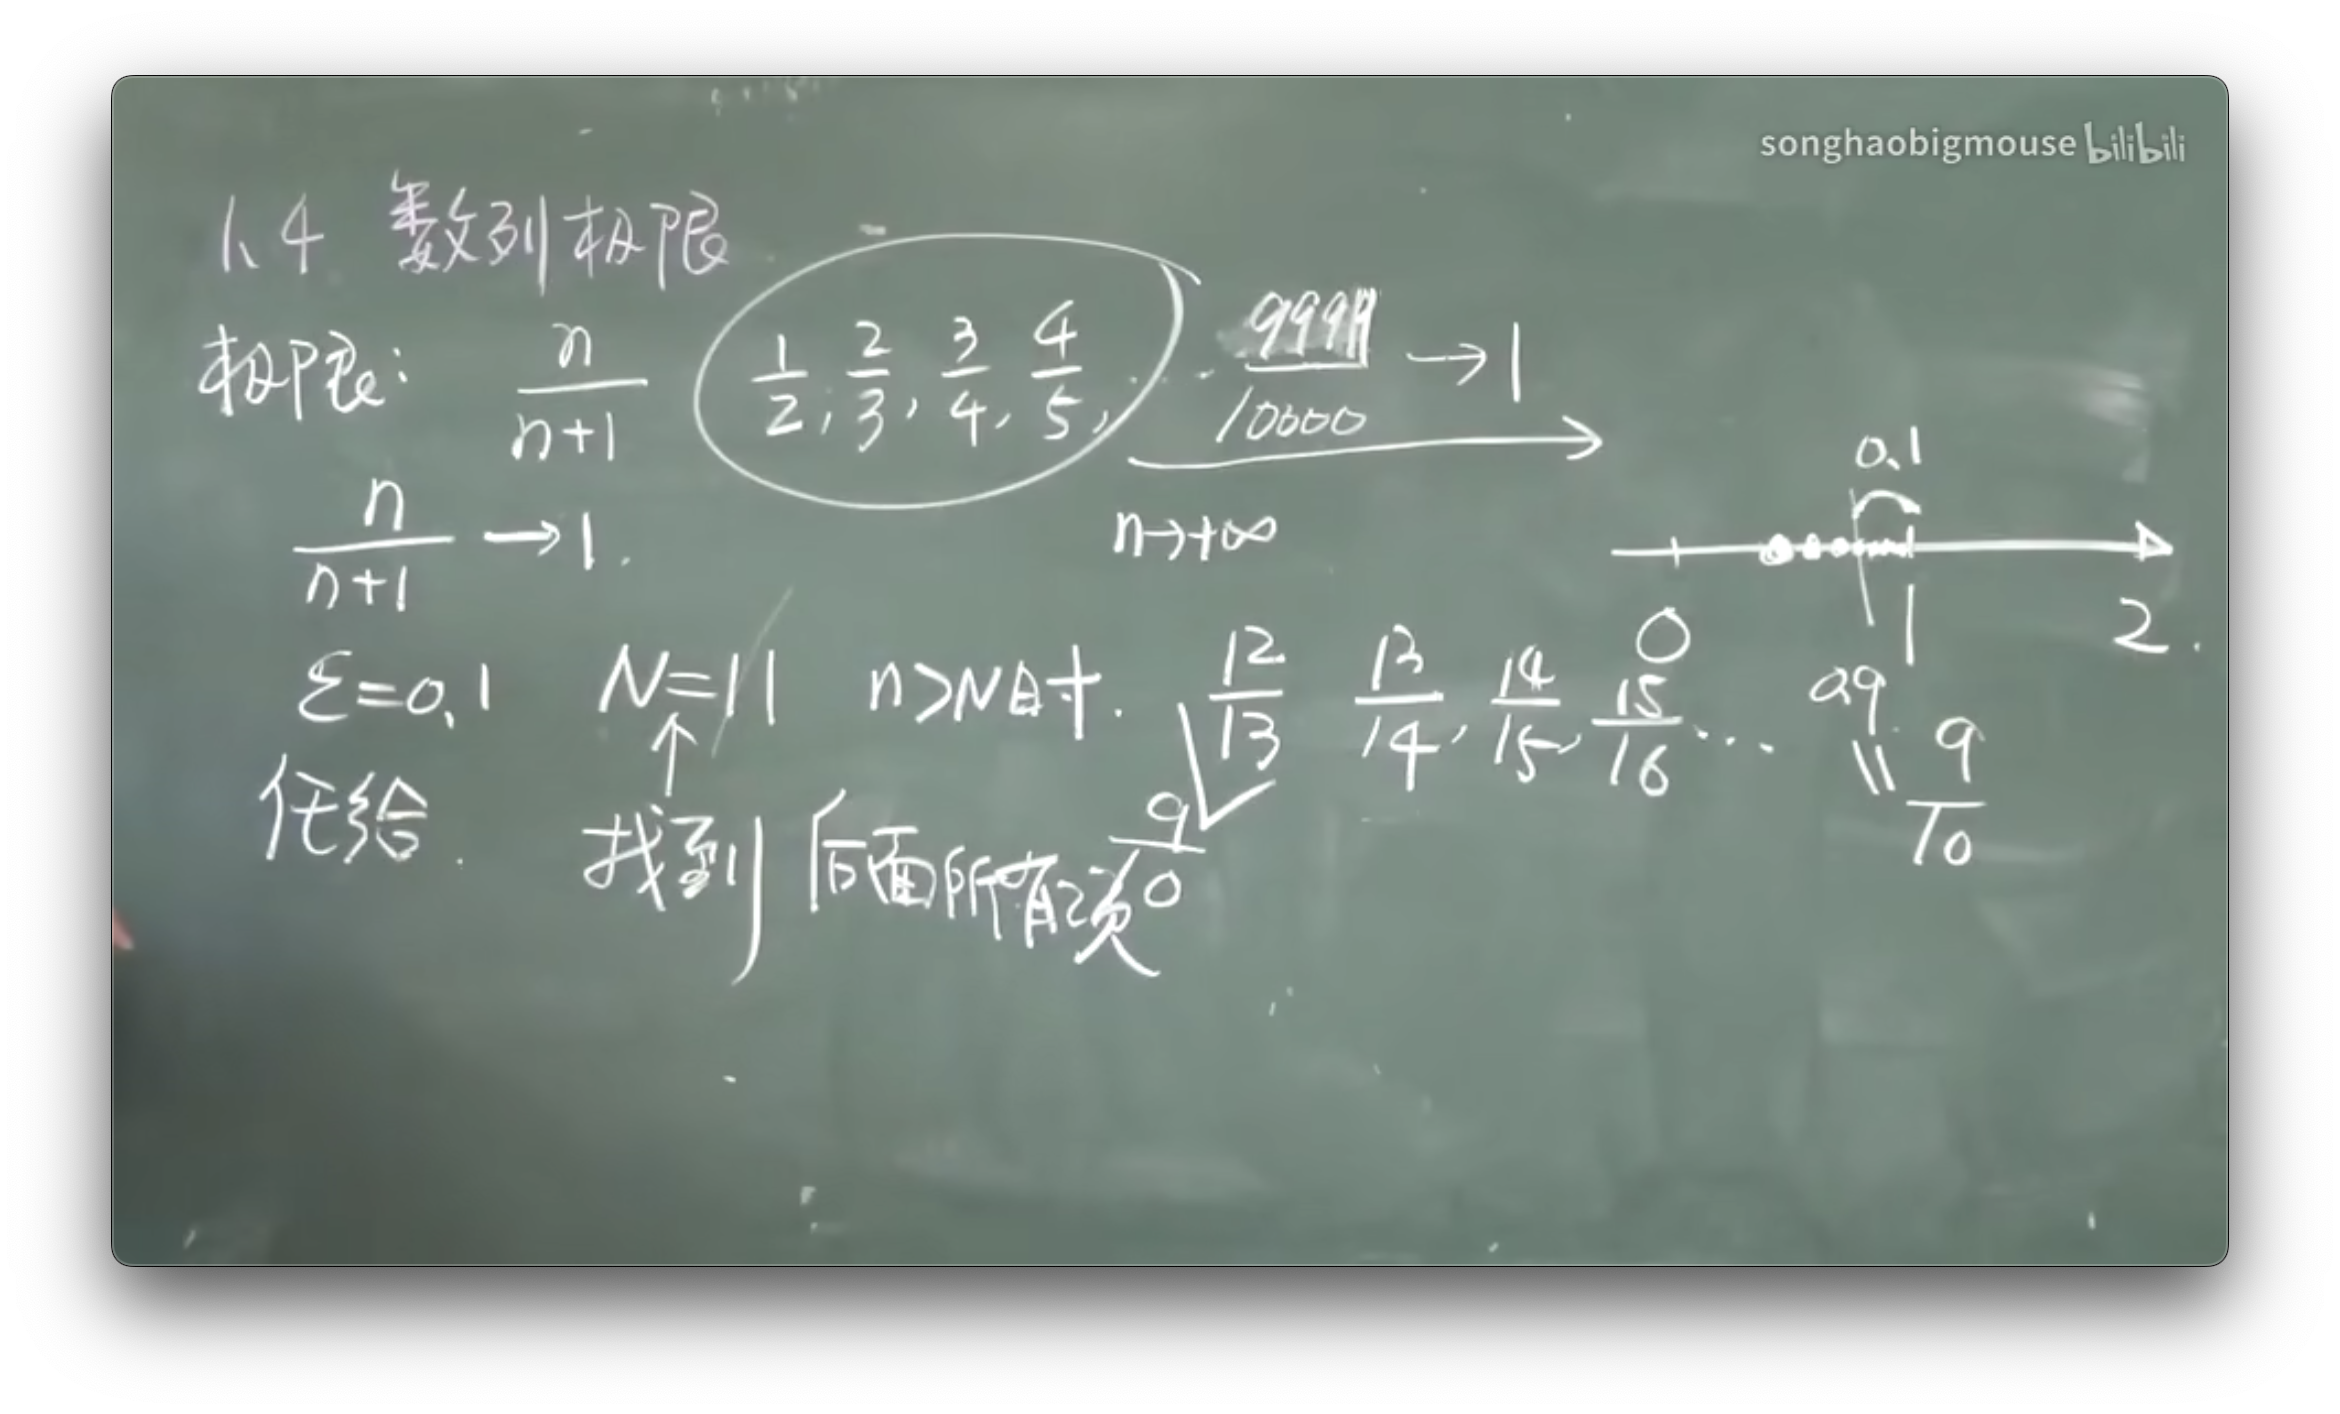 songhaobigmouse bilibili
1.4 数列极限
极限: n/(n+1) 1/2, 2/3, 3/4, 4/5, ... 9999/10000 →1
n→+∞
n/(n+1) →1.
0.1
0 1 2.
0.9 = 9/10
ε=0.1 N=11 n>N时. 12/13 13/14, 14/15, 15/16 ...
任给. 找到 后面所有项 9/10